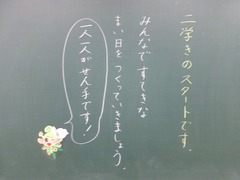 二学きのスタートです。
みんなですてきな
まい日をつくっていきましょう。
一人一人がせん手です！